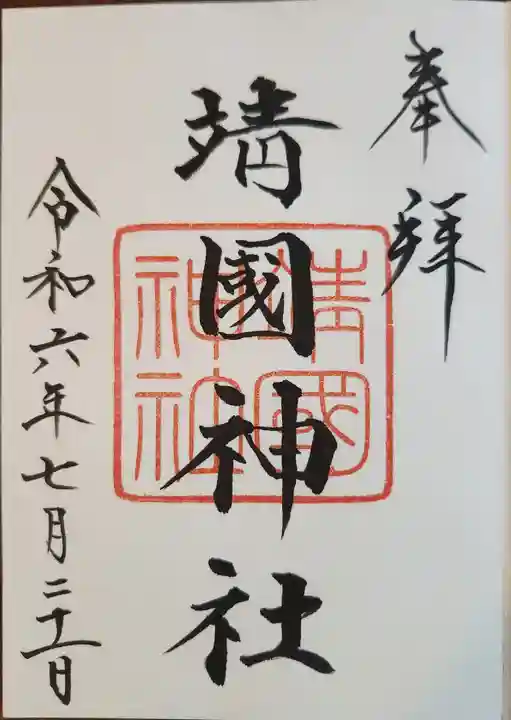 奉拝
靖國神社
靖國神社
令和六年七月二十一日